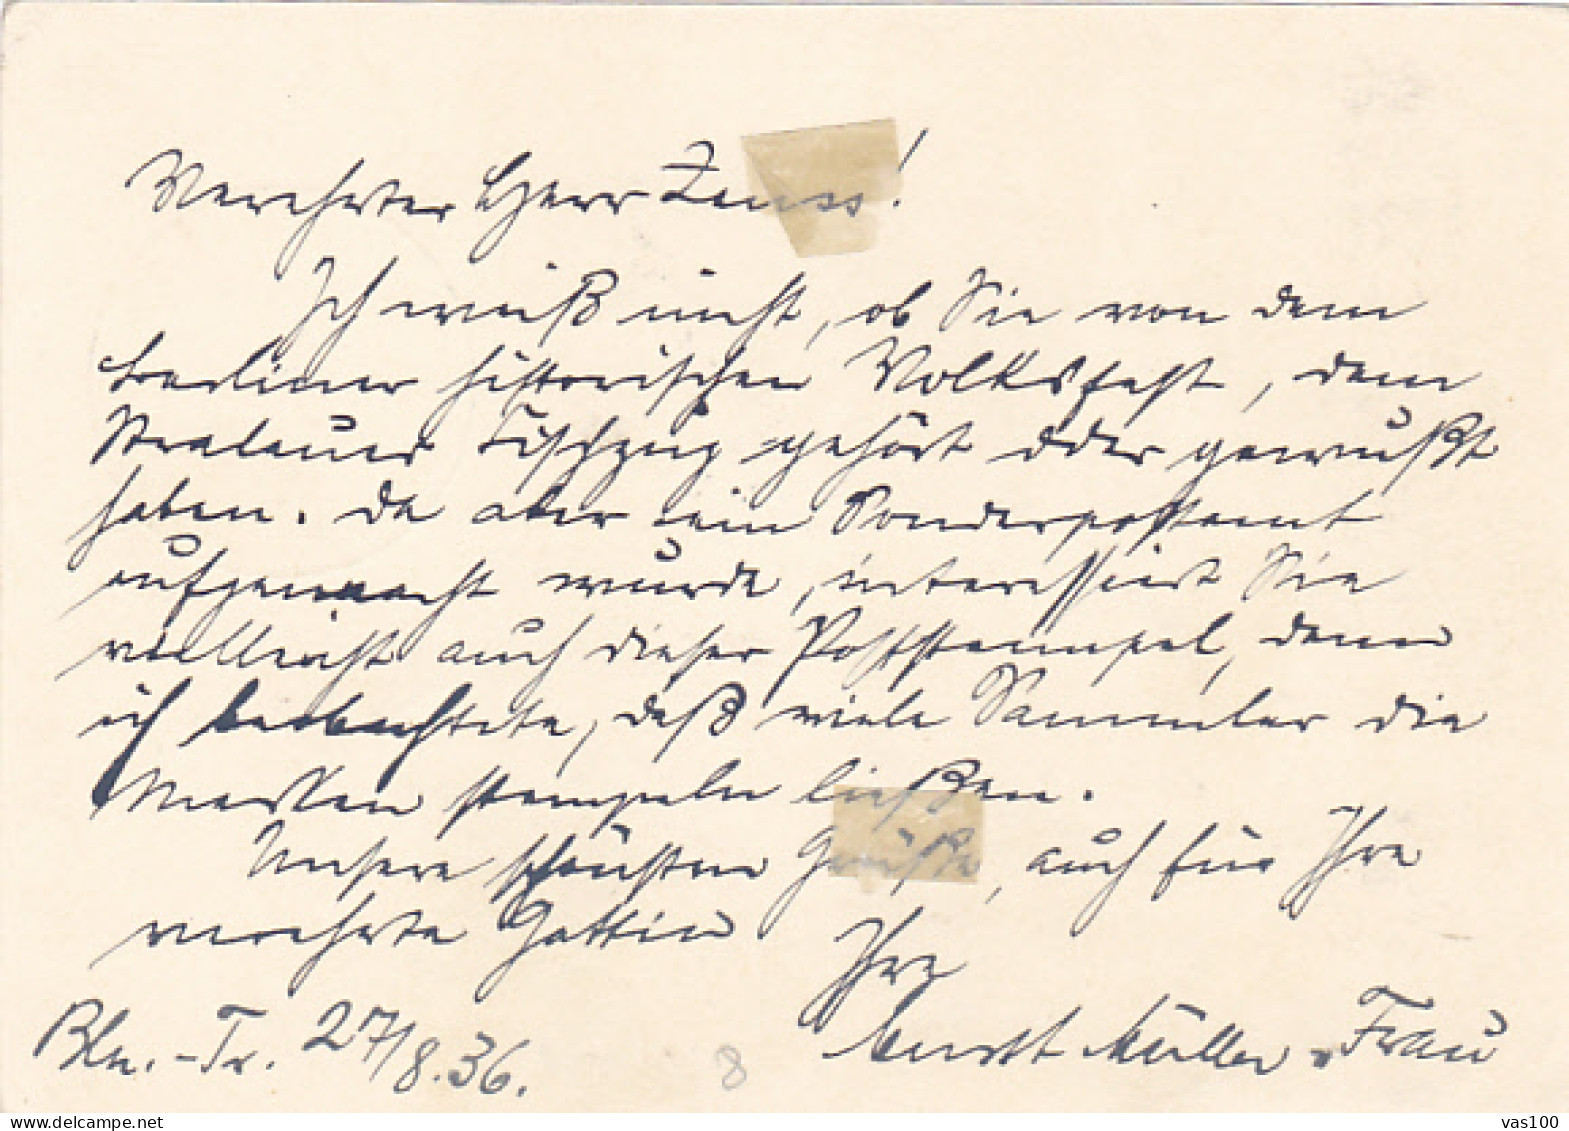 Verehrter Herr Zeuss!
Ich weiß nicht, ob Sie von dem
Berliner historischen Volksfest, dem
Stralauer Fischzug gehört oder gewußt
haben. Da aber ein Sonderpostamt
aufgemacht wurde, interessiert Sie
vielleicht auch dieser Poststempel, denn
ich beobachtete, daß viele Sammler die
Marken stempeln ließen.
Unsere schönsten Grüße, auch für Ihre
verehrte Gattin
Ihr
Müller u. Frau
Bln.-Tr. 27/8.36.
8
delcampe.net
vas100